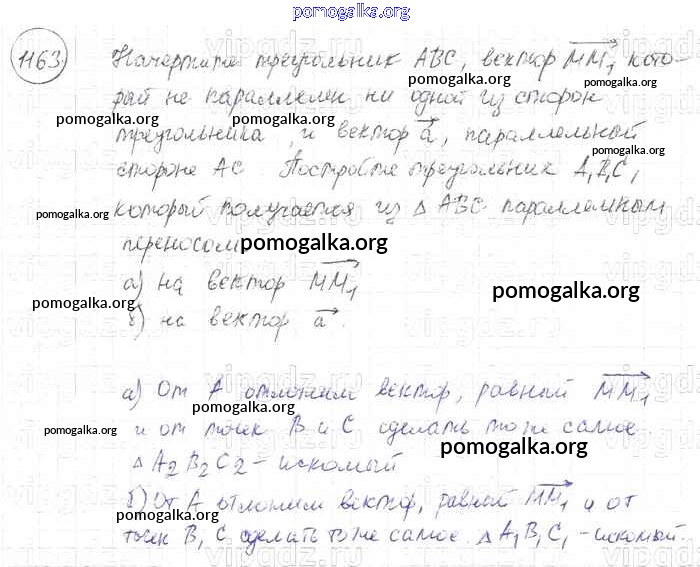 pomogalka.org
1163. Начертите треугольник ABC, вектор MM₁, кото-
рый не параллелен ни одной из сторон
pomogalka.org pomogalka.org pomogalka.org
треугольника, и вектор a, параллельный
pomogalka.org
стороне AC. Постройте треугольник A₁B₁C₁,
который получается из △ ABC параллельным
pomogalka.org
переносом
pomogalka.org
а) на вектор MM₁
pomogalka.org pomogalka.org
б) на вектор a.
а) От A отложим вектор, равный MM₁
pomogalka.org
и от точек B и C сделать то же самое
pomogalka.org pomogalka.org
△ A₂B₂C₂ - искомый
б) От A отложим вектор, равный MM₁ и от
pomogalka.org pomogalka.org
точек B, C сделать то же самое. △ A₁B₁C₁ - искомый.